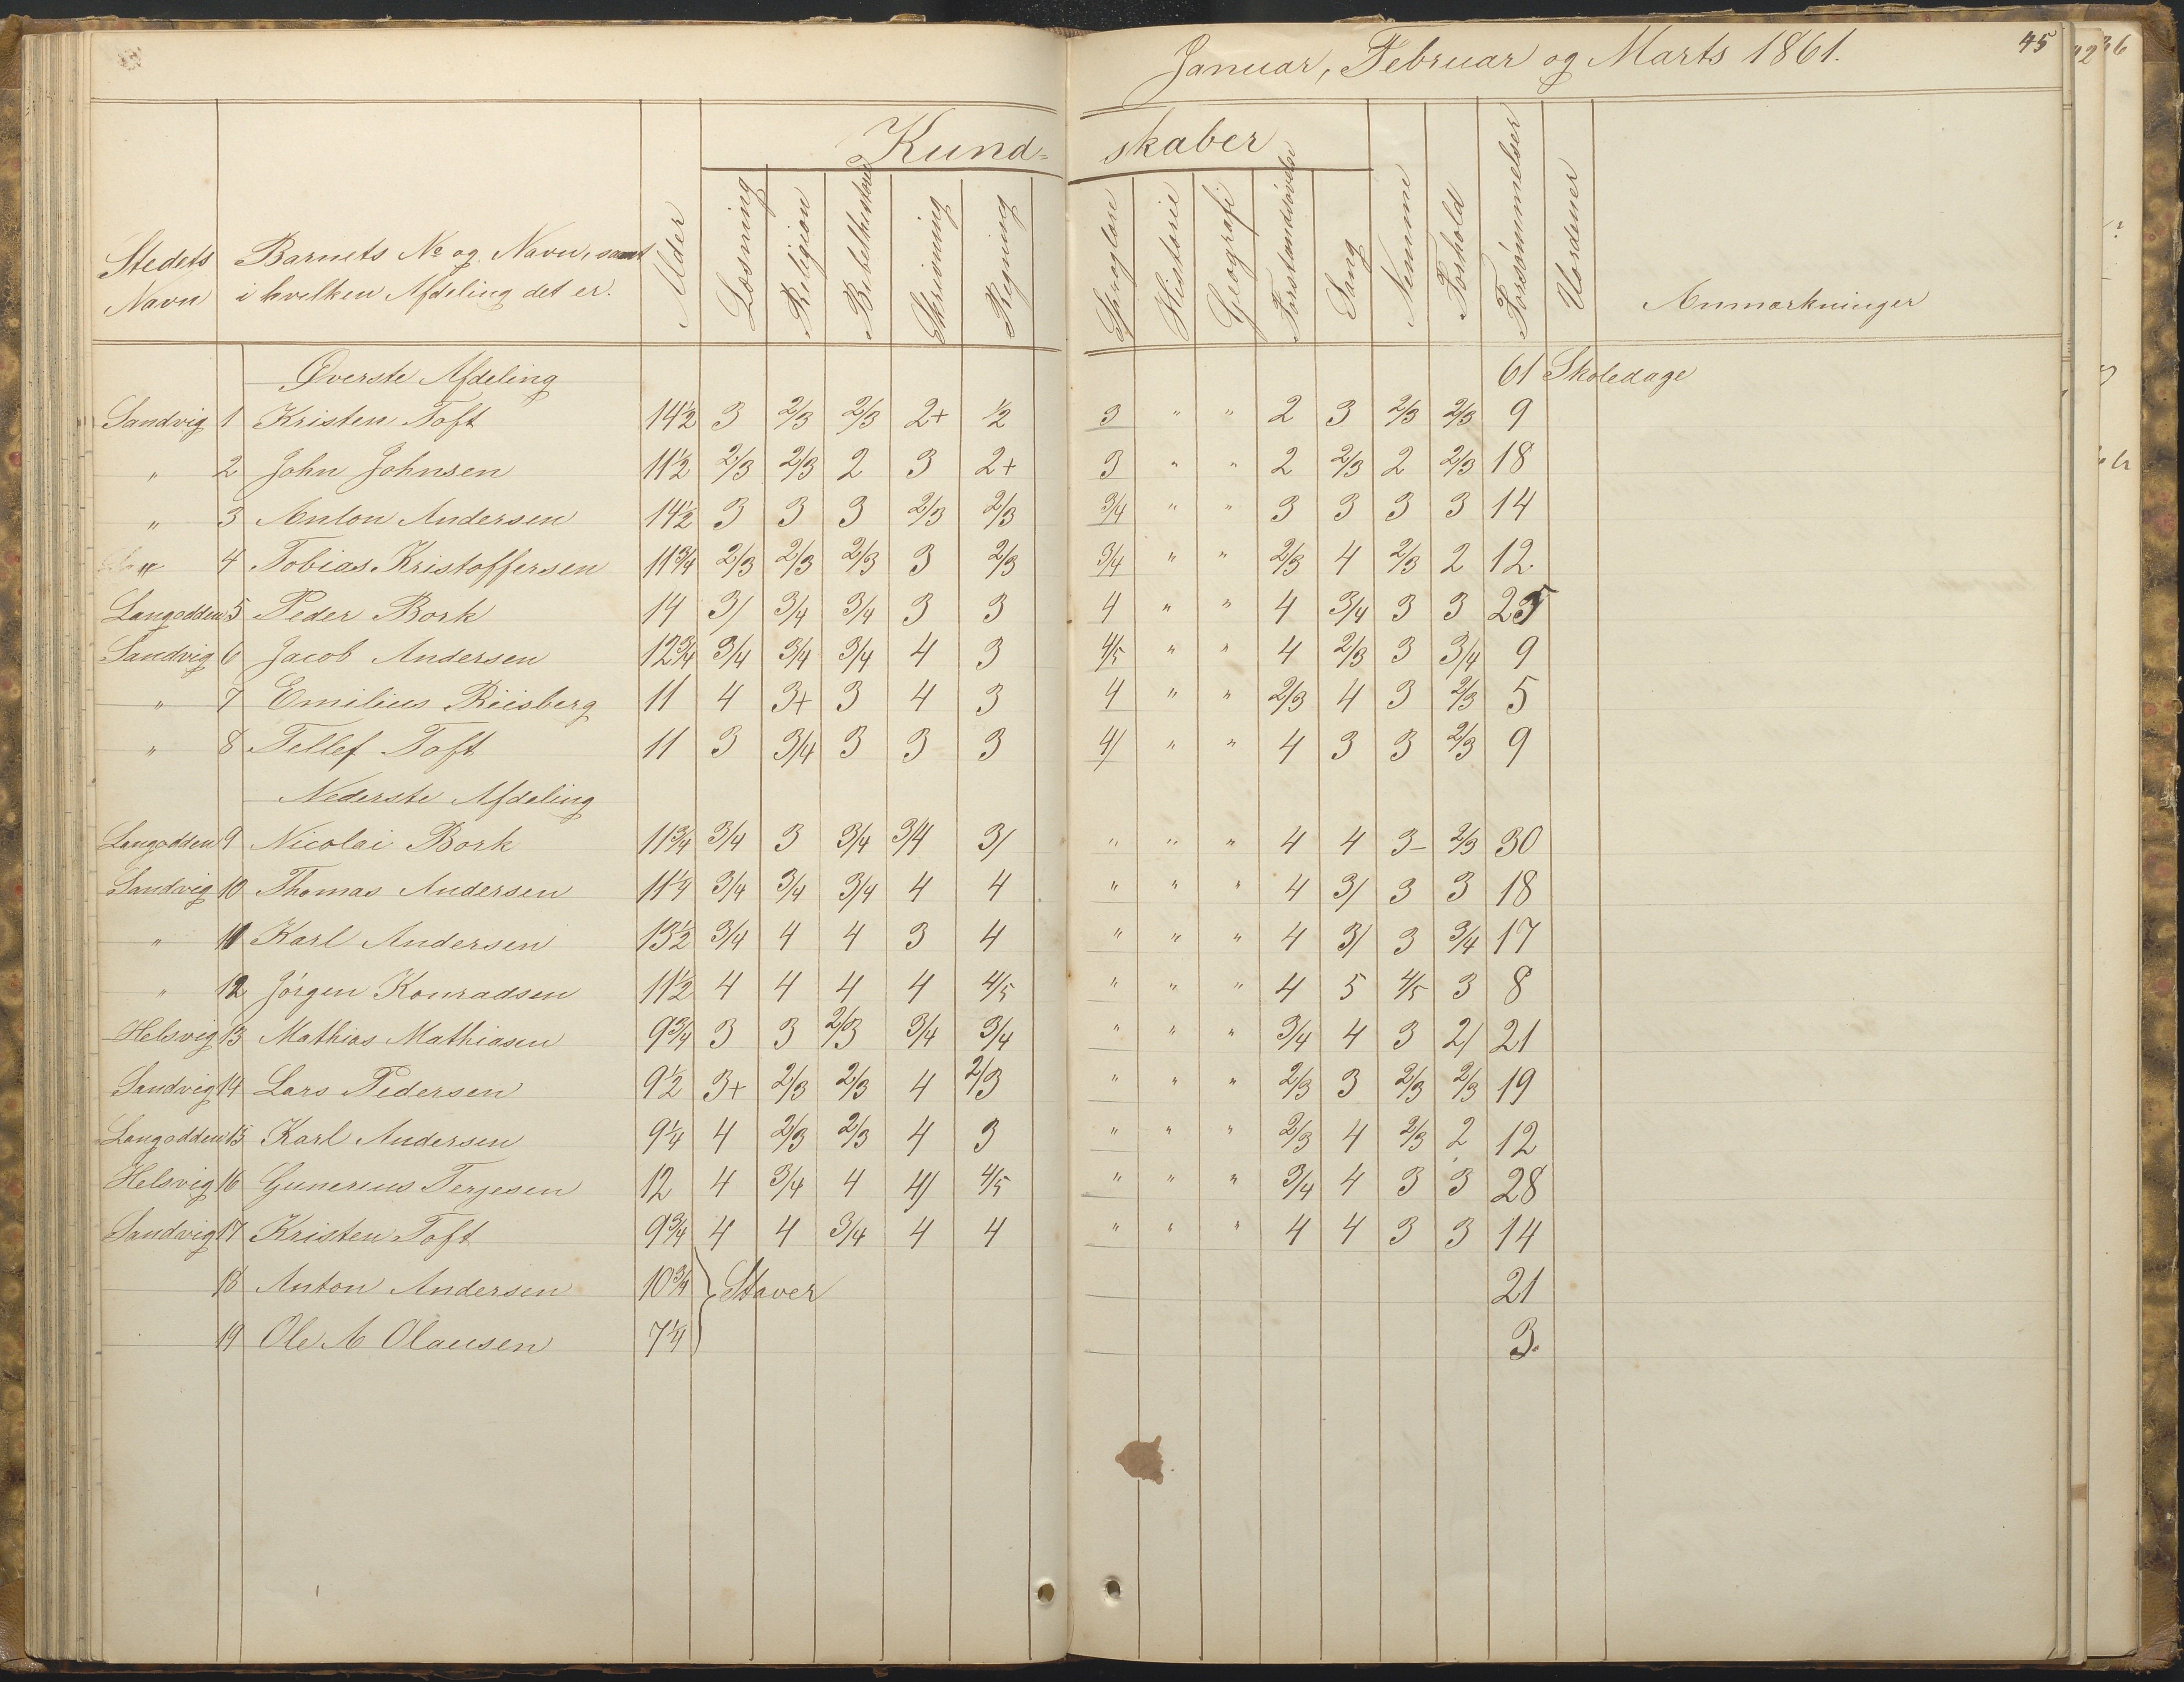 Januar, Februar og Marts 1861. 45
Kund- skaber
Stedets Navn | Barnets No og Navn, samt i hvilken Afdeling det er. | Alder | Læsning | Religion | Bibelhistorie | Skrivning | Regning | Sproglære | Historie | Geografi | Forstandsøvelse | Sang | Nemme | Forhold | Forsømmelser | Uordener | Anmærkninger
Øverste Afdeling 61 Skoledage
Sandvig 1 Kristen Toft 14½ 3 2/3 2/3 2+ ½ 3 " " 2 3 2/3 2/3 9
" 2 John Johnsen 11½ 2/3 2/3 2 3 2+ 3 " " 2 2/3 2 2/3 18
" 3 Anton Andersen 14½ 3 3 3 2/3 2/3 3/4 " " 3 3 3 3 14
" 4 Tobias Kristoffersen 11¾ 2/3 2/3 2/3 3 2/3 3/4 " " 2/3 4 2/3 2 12
Langodden 5 Peder Bork 14 3/ 3/4 3/4 3 3 4 " " 4 3/4 3 3 25
Sandvig 6 Jacob Andersen 12¾ 3/4 3/4 3/4 4 3 4/5 " " 4 2/3 3 3/4 9
" 7 Emilius Riisberg 11 4 3+ 3 4 3 4 " " 2/3 4 3 2/3 5
" 8 Tellef Toft 11 3 3/4 3 3 3 4/ " " 4 3 3 2/3 9
Nederste Afdeling
Langodden 9 Nicolai Bork 11¾ 3/4 3 3/4 3/4 3/ " " " 4 4 3- 2/3 30
Sandvig 10 Thomas Andersen 11¼ 3/4 3/4 3/4 4 4 " " " 4 3/ 3 3 18
" 11 Karl Andersen 13½ 3/4 4 4 3 4 " " " 4 3/ 3 3/4 17
" 12 Jörgen Konradsen 11½ 4 4 4 4 4/5 " " " 4 5 4/5 3 8
Helsvig 13 Mathias Mathiasen 9¾ 3 3 2/3 3/4 3/4 " " " 3/4 4 3 2/ 21
Sandvig 14 Lars Pedersen 9½ 3+ 2/3 2/3 4 2/3 " " " 2/3 3 2/3 2/3 19
Langodden 15 Karl Andersen 9¼ 4 2/3 2/3 4 3 " " " 2/3 4 2/3 2 12
Helsvig 16 Gunerius Terjesen 12 4 3/4 4 4/ 4/5 " " " 3/4 4 3 3 28
Sandvig 17 Kristen Toft 9¾ 4 4 3/4 4 4 " " " 4 4 3 3 14
18 Anton Andersen 10¾ } Staver 21
19 Ole A Olausen 7¼ 3.